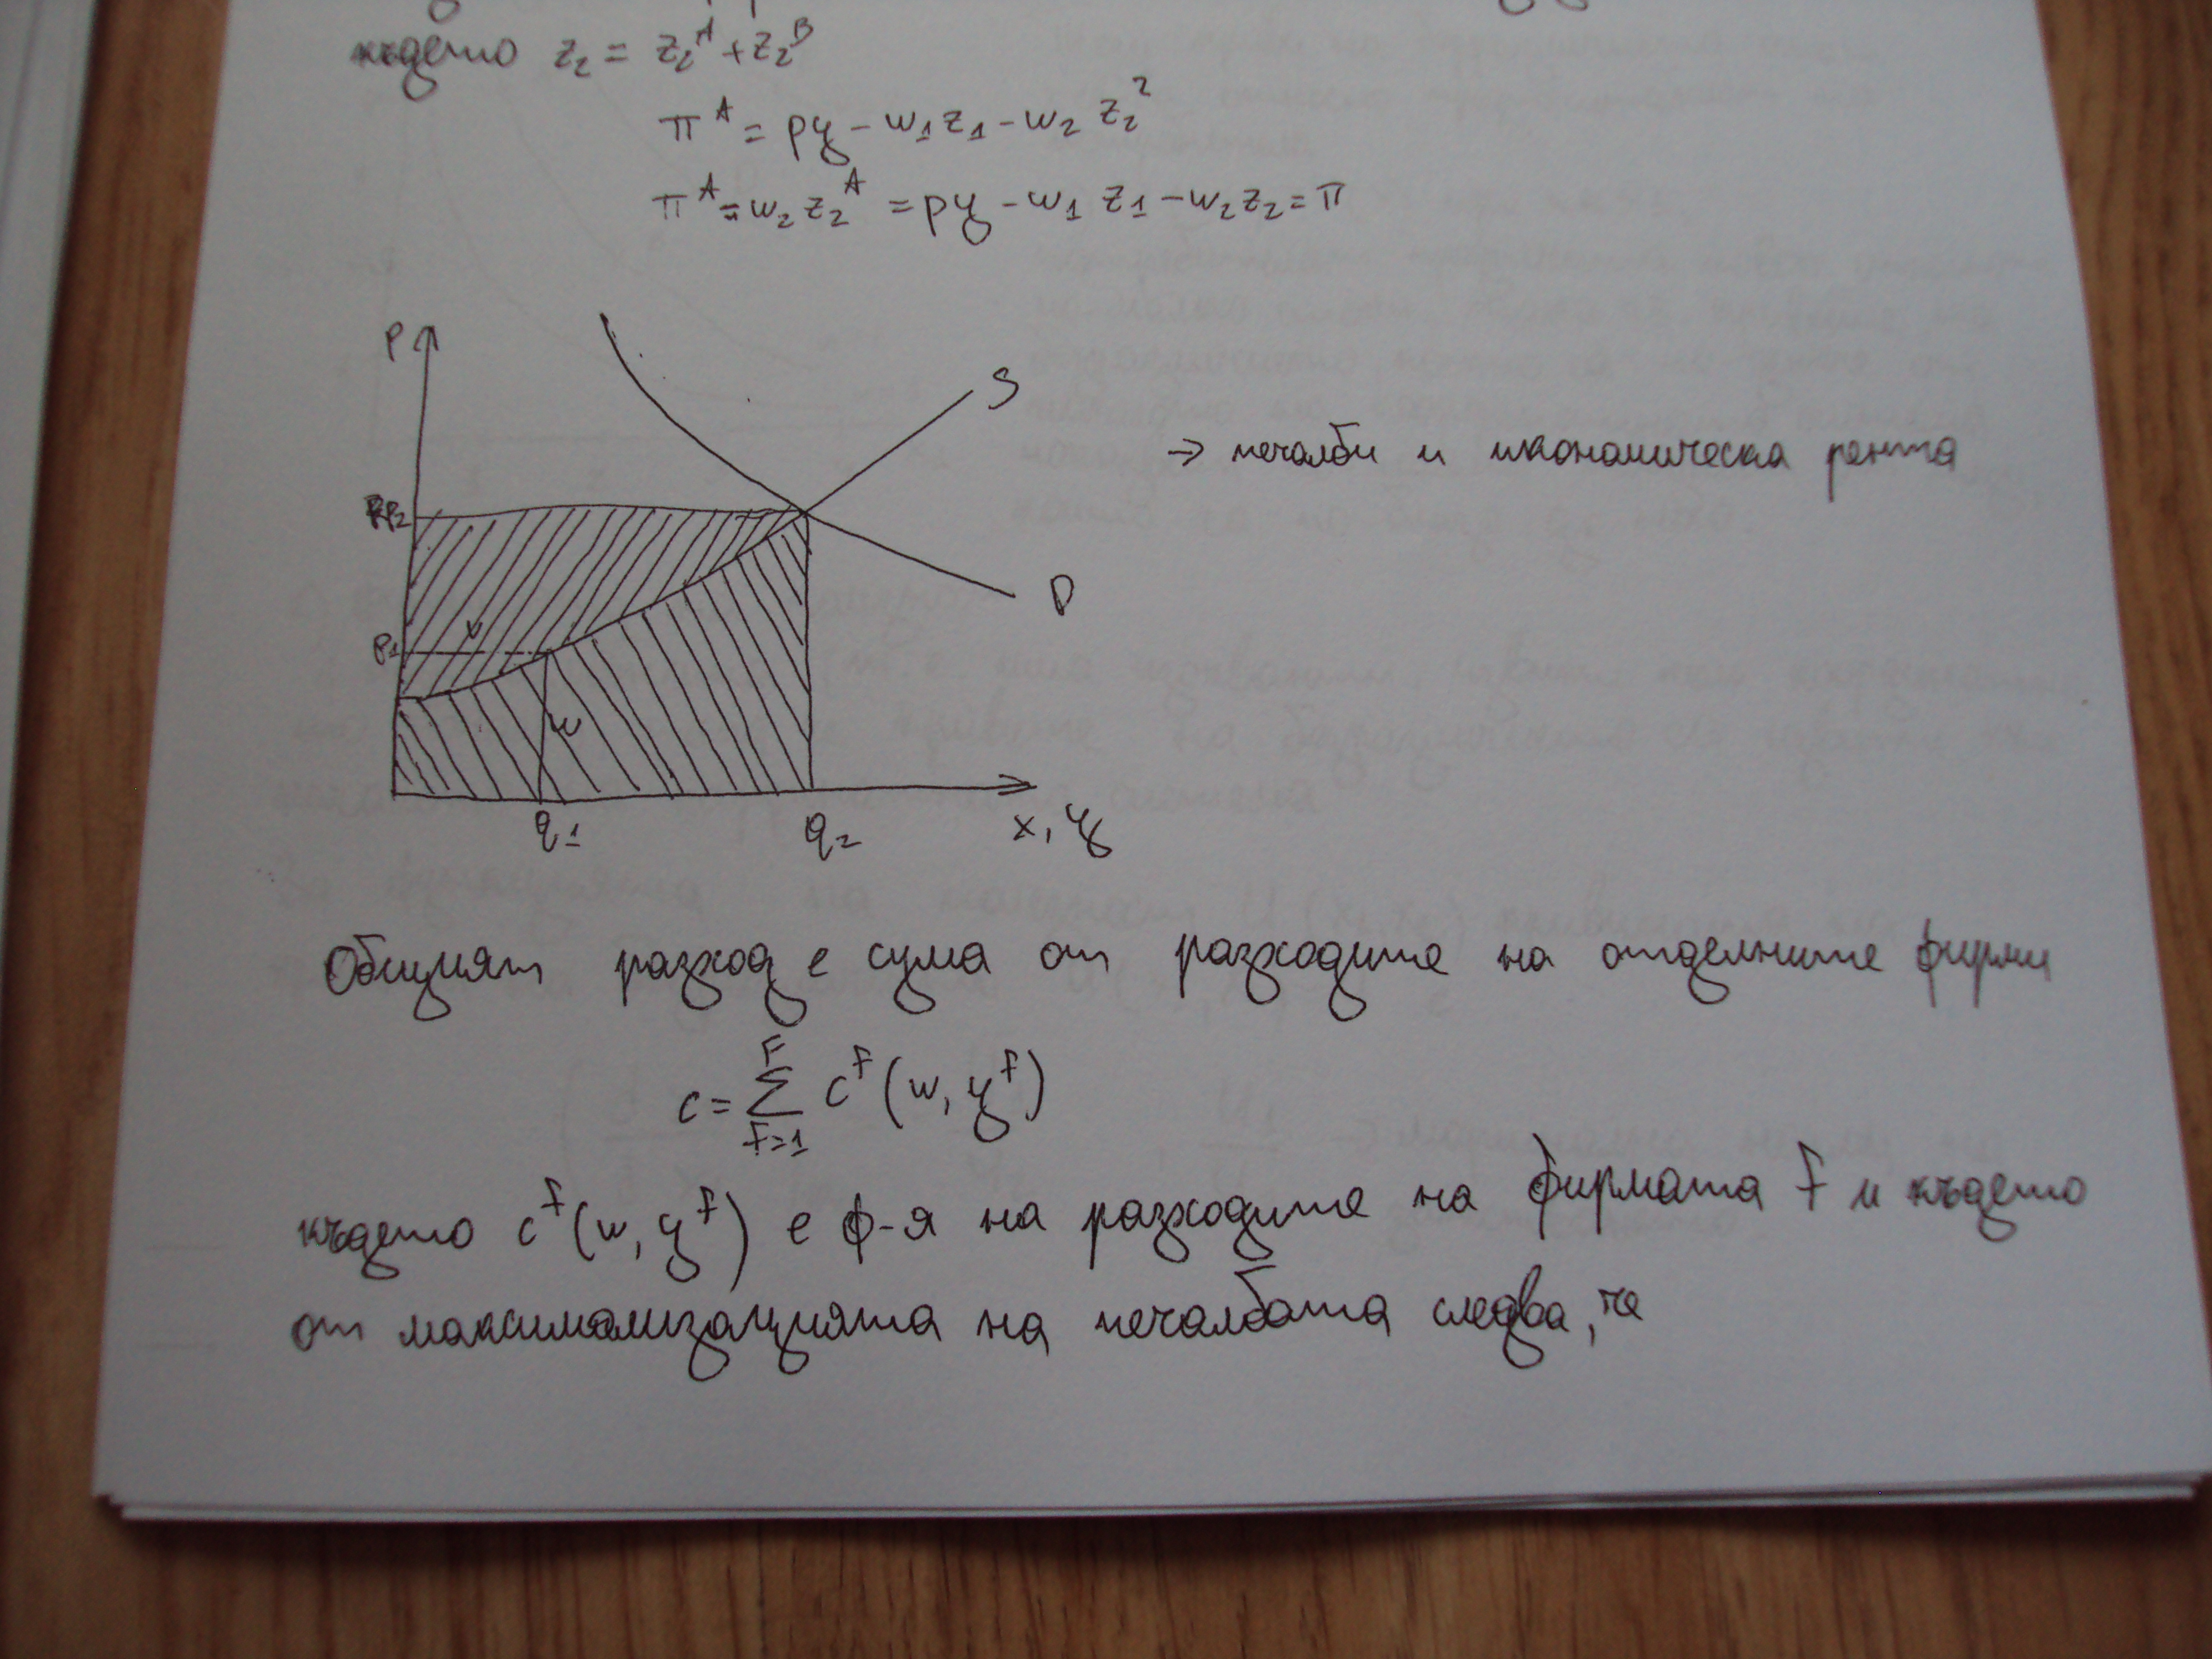 където z₂ = z₂ᴬ + z₂ᴮ
πᴬ = py - w₁z₁ - w₂ z₂²
πᴬ = w₂ z₂ᴬ = py - w₁ z₁ - w₂z₂ = π
P
S
→ печалби и икономическа рента
P₂
D
P₁
v
w
q₁ q₂ x, y
Общият разход е сума от разходите на отделните фирми
c = Σ cᶠ (w, yᶠ)
F
F=1
където cᶠ(w, yᶠ) е ф-я на разходите на фирмата f и където
от максимализацията на печалбата следва, че